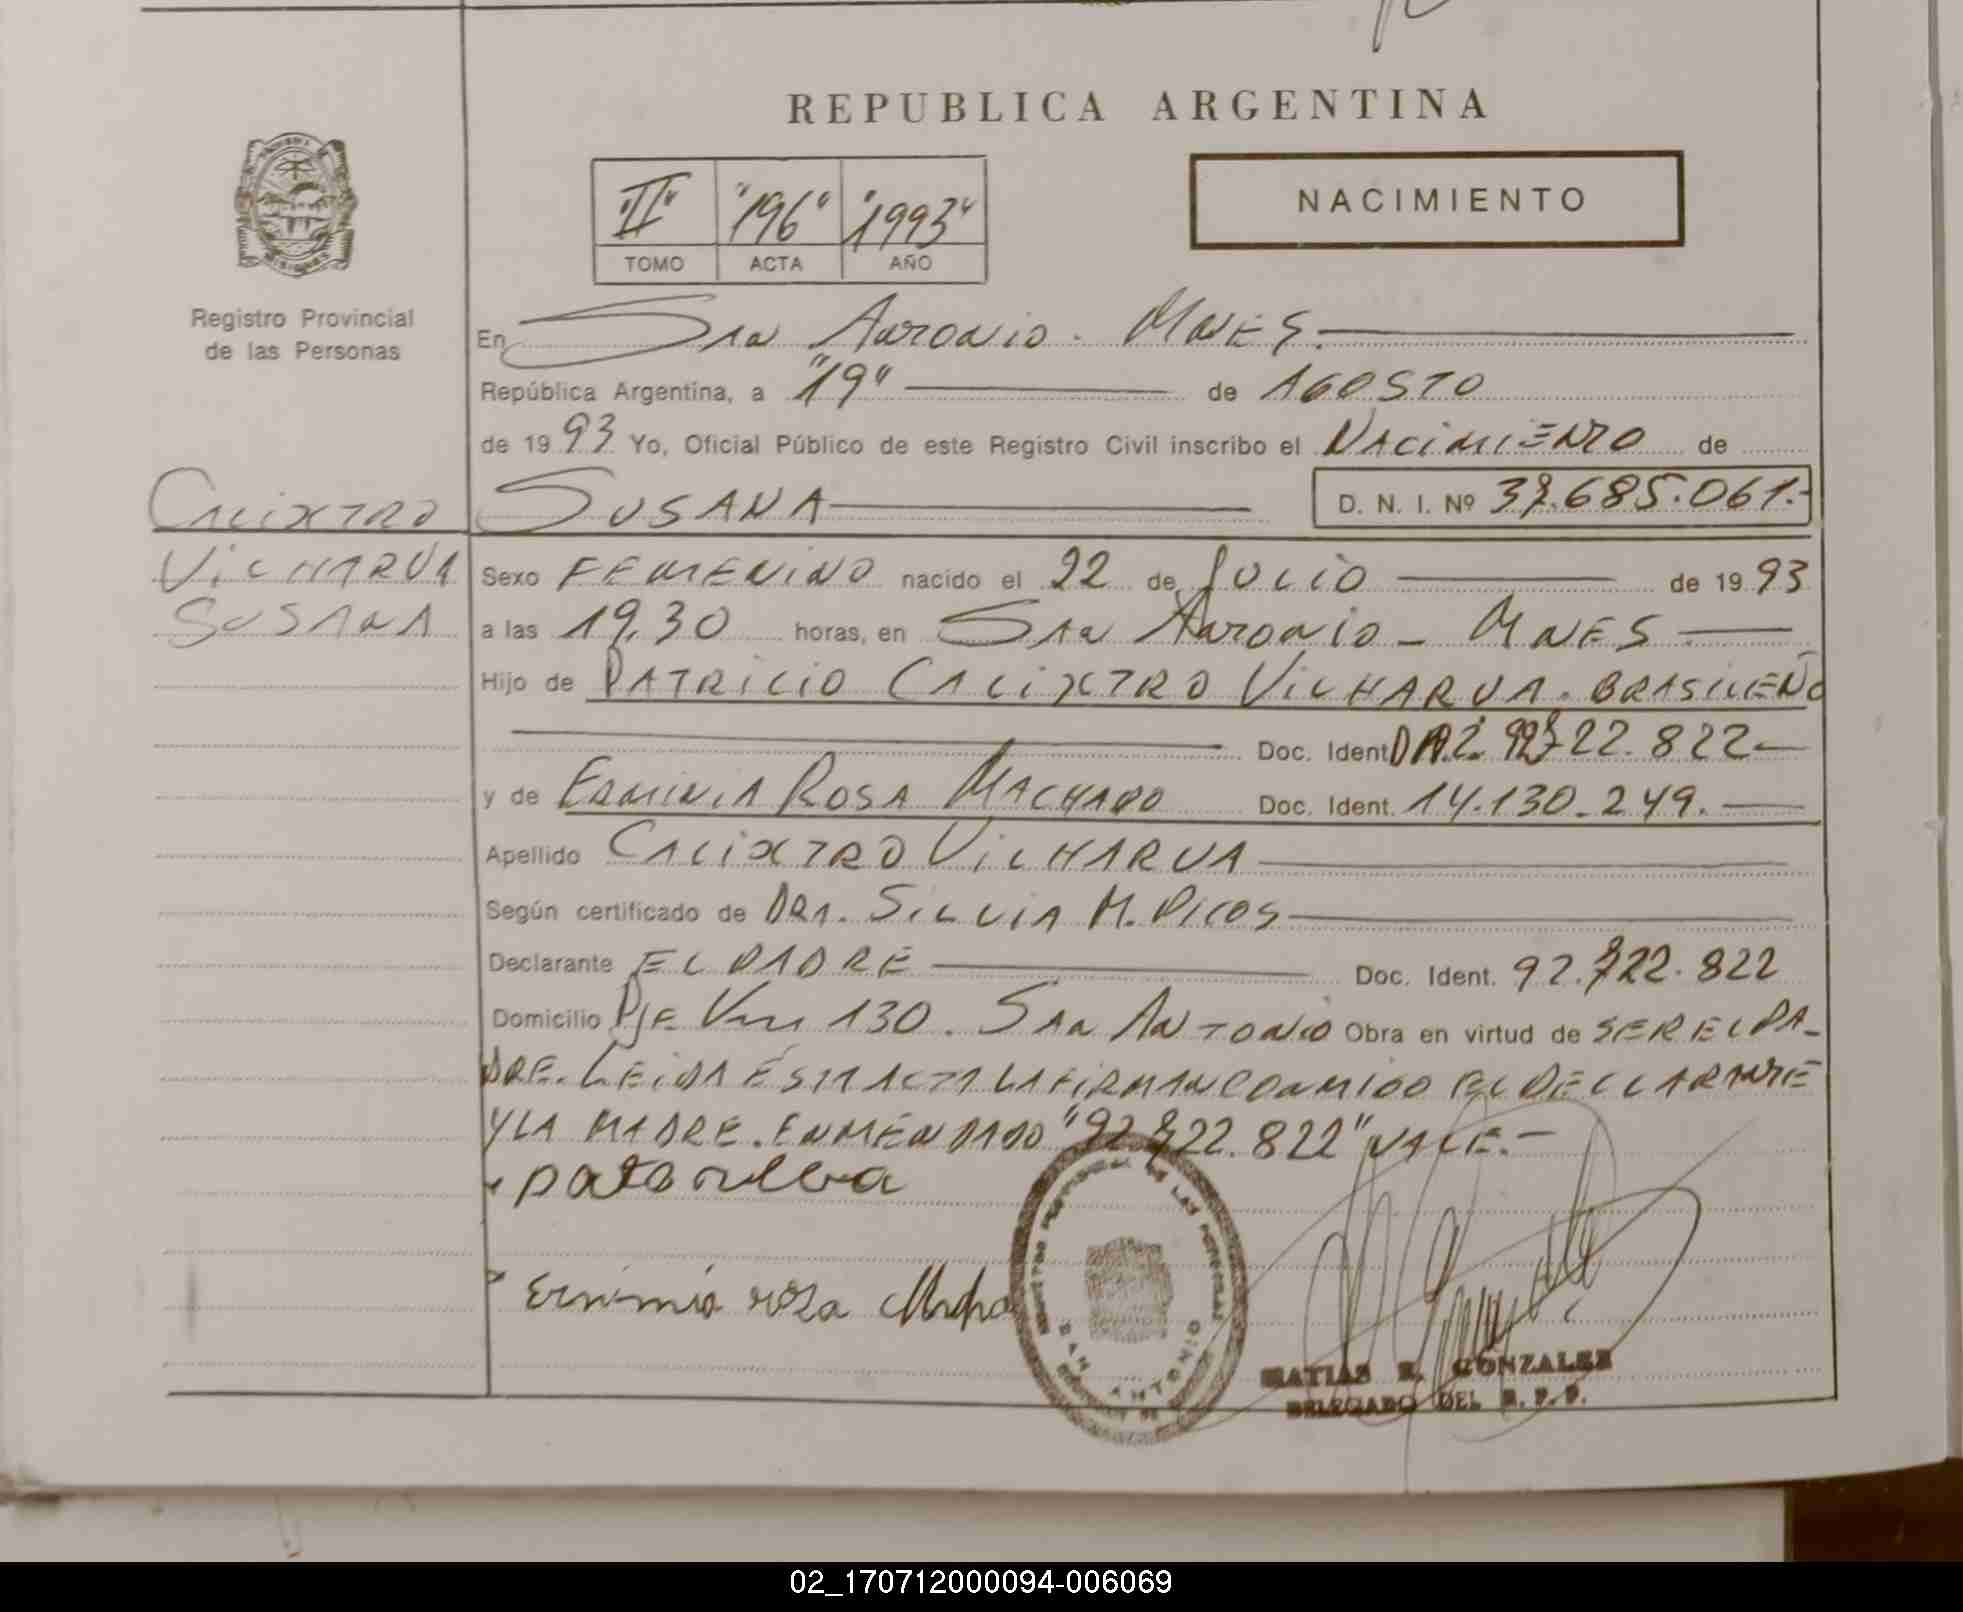 REPUBLICA ARGENTINA
"II" "196" "1993"
TOMO ACTA AÑO
NACIMIENTO
Registro Provincial
de las Personas
En San Antonio - Mnes.
República Argentina, a "19" de AGOSTO
de 1993 Yo, Oficial Público de este Registro Civil inscribo el NACIMIENTO de
SUSANA D. N. I. Nº 37.685.061.-
CALIXTRO
VILHARVA
SUSANA
Sexo FEMENINO nacido el 22 de JULIO de 1993
a las 19,30 horas, en San Antonio - Mnes
Hijo de PATRICIO CALIXTRO VILHARVA. BRASILEÑO
Doc. Ident. 92.722.822
y de ERMINIA ROSA MACHADO Doc. Ident. 14.130.249.
Apellido CALIXTRO VILHARVA
Según certificado de DRA. SILVIA M.
Declarante EL PADRE Doc. Ident. 92.722.822
Domicilio PJE 130. San Antonio Obra en virtud de SER EL PA-
DRE. LEIDA ESTA ACTA LA FIRMAN CONMIGO EL DECLARANTE
Y LA MADRE. ENMENDADO "92.722.822" VALE.-
rosa
SAN ANTONIO
MATIAS R. GONZALEZ
DELEGADO DEL R. P. P.
02_170712000094-006069